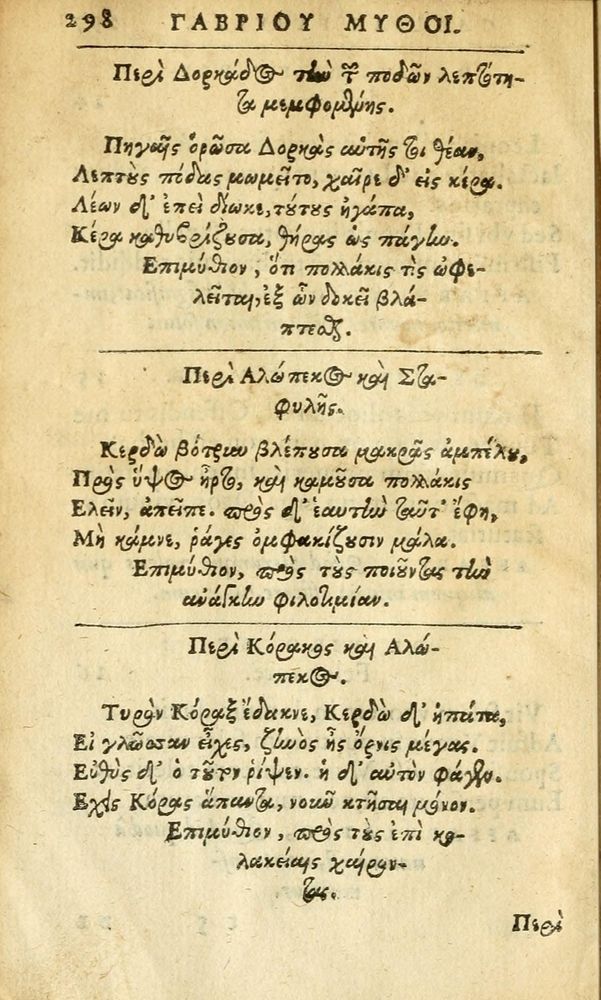 298 ΓΑΒΡΙΟΥ ΜΥΘΟΙ.
Περὶ Δορκάδος τὴν τῶν ποδῶν λεπτότη-
τα μεμφομένης.
Πηγαῖς ὁρῶσα Δορκὰς αὐτῆς τὴ θέαν,
Λεπτοὺς πόδας μωμεῖτο, χαῖρε δ' εἰς κέρα.
Λέων δ' ἐπεὶ δίωκε, τούτους ἠγάπα,
Κέρα καθυβρίζουσα, θήρας ὡς πάγην.
Επιμύθιον, ὅτι πολλάκις τὶς ὠφε-
λεῖται, ἐξ ὧν δοκεῖ βλά-
πτεσθαι.
Περὶ Αλώπεκος καὶ Στα-
φυλῆς.
Κερδὼ βότρυν βλέπουσα μακρᾶς ἀμπέλου,
Πρὸς ὕψος ἦρτο, καὶ καμοῦσα πολλάκις
Ελεῖν, ἀπεῖπε. πρὸς δ' ἑαυτὴν ταῦτ' ἔφη,
Μὴ κάμνε, ῥάγες ὀμφακίζουσιν μάλα.
Επιμύθιον, πρὸς τοὺς ποιοῦντας τὴν
ἀνάγκην φιλοτιμίαν.
Περὶ Κόρακος καὶ Αλώ-
πεκος.
Τυρὸν Κόραξ ἔδακνε, Κερδὼ δ' ἠπάτα,
Εἰ γλῶσσαν εἶχες, ζηνὸς ἦς ὄρνις μέγας.
Εὐθὺς δ' ὁ τοῦτον ῥίψεν. ἡ δ' αὐτὸν φάγεν.
Εχεις Κόρας ἅπαντα, νοῦν κτῆσαι μόνον.
Επιμύθιον, πρὸς τοὺς ἐπὶ κο-
λακείαις χαίρον-
τας.
Περὶ